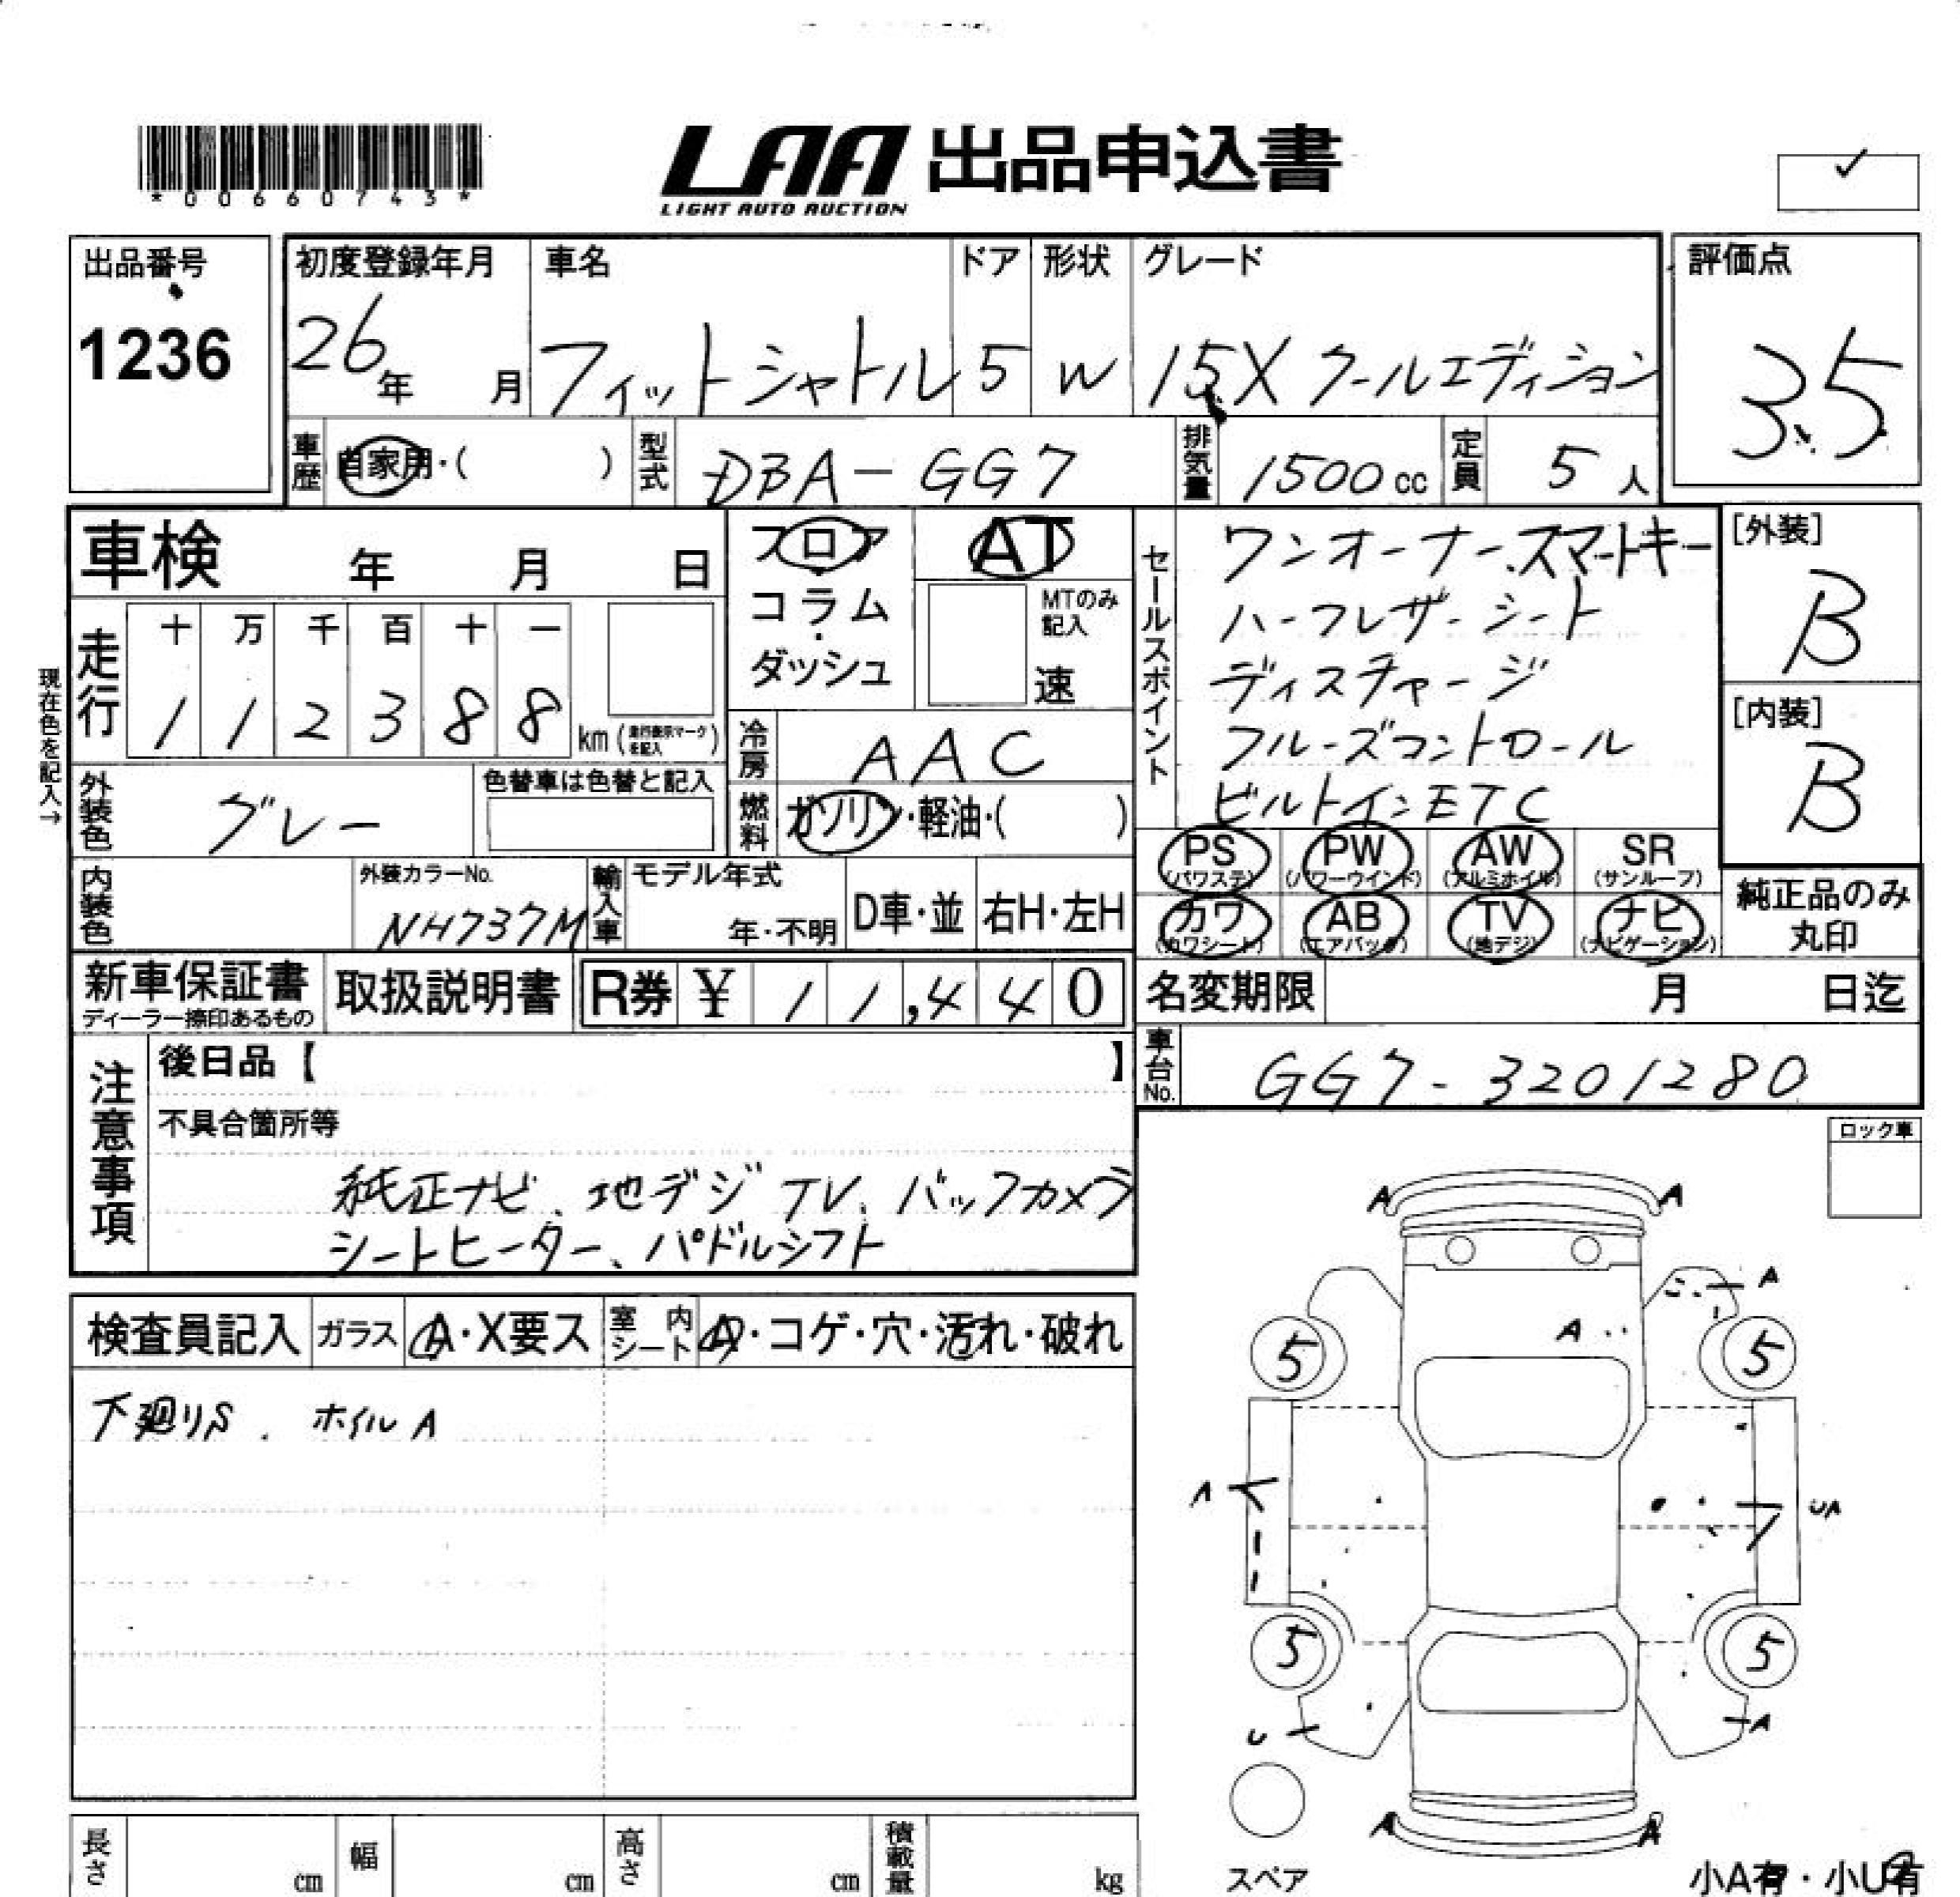 *00660743*
LAA 出品申込書
LIGHT AUTO AUCTION
✓
出品番号
1236
初度登録年月
26年 月
車名
フィットシャトル
ドア
5
形状
W
グレード
15X クールエディション
評価点
3.5
車歴
自家用・( )
型式
DBA-GG7
排気量
1500cc
定員
5人
車検 年 月 日
フロア
コラム
ダッシュ
AT
MTのみ
記入
速
セールスポイント
ワンオーナー.スマートキー
ハーフレザーシート
ディスチャージ
フルーズコントロール
ビルトインETC
[外装]
B
[内装]
B
現在色を記入→
走行
十 万 千 百 十 一
1 1 2 3 8 8
km(走行表示マークを記入)
冷房
AAC
外装色
グレー
色替車は色替と記入
燃料
ガソリン・軽油・( )
PS
(パワステ)
PW
(パワーウインド)
AW
(アルミホイル)
SR
(サンルーフ)
内装色
外装カラーNo.
NH737M
輸入車
モデル年式
年・不明
D車・並
右H・左H
カワ
(カワシート)
AB
(エアバック)
TV
(地デジ)
ナビ
(ナビゲーション)
純正品のみ
丸印
新車保証書
ディーラー捺印あるもの
取扱説明書
R券 ¥ 11,440
名変期限 月 日迄
車台No.
GG7-3201280
注意事項
後日品【 】
不具合箇所等
純正ナビ、地デジTV、バックカメラ
シートヒーター、パドルシフト
ロック車
検査員記入
ガラス
A・X要ス
室内シート
A・コゲ・穴・汚れ・破れ
下廻りS. ホイルA
A A
A
A
5 5
A UA
5 5
U A
A A
スペア
小A有・小U有
長さ cm
幅 cm
高さ cm
積載量 kg